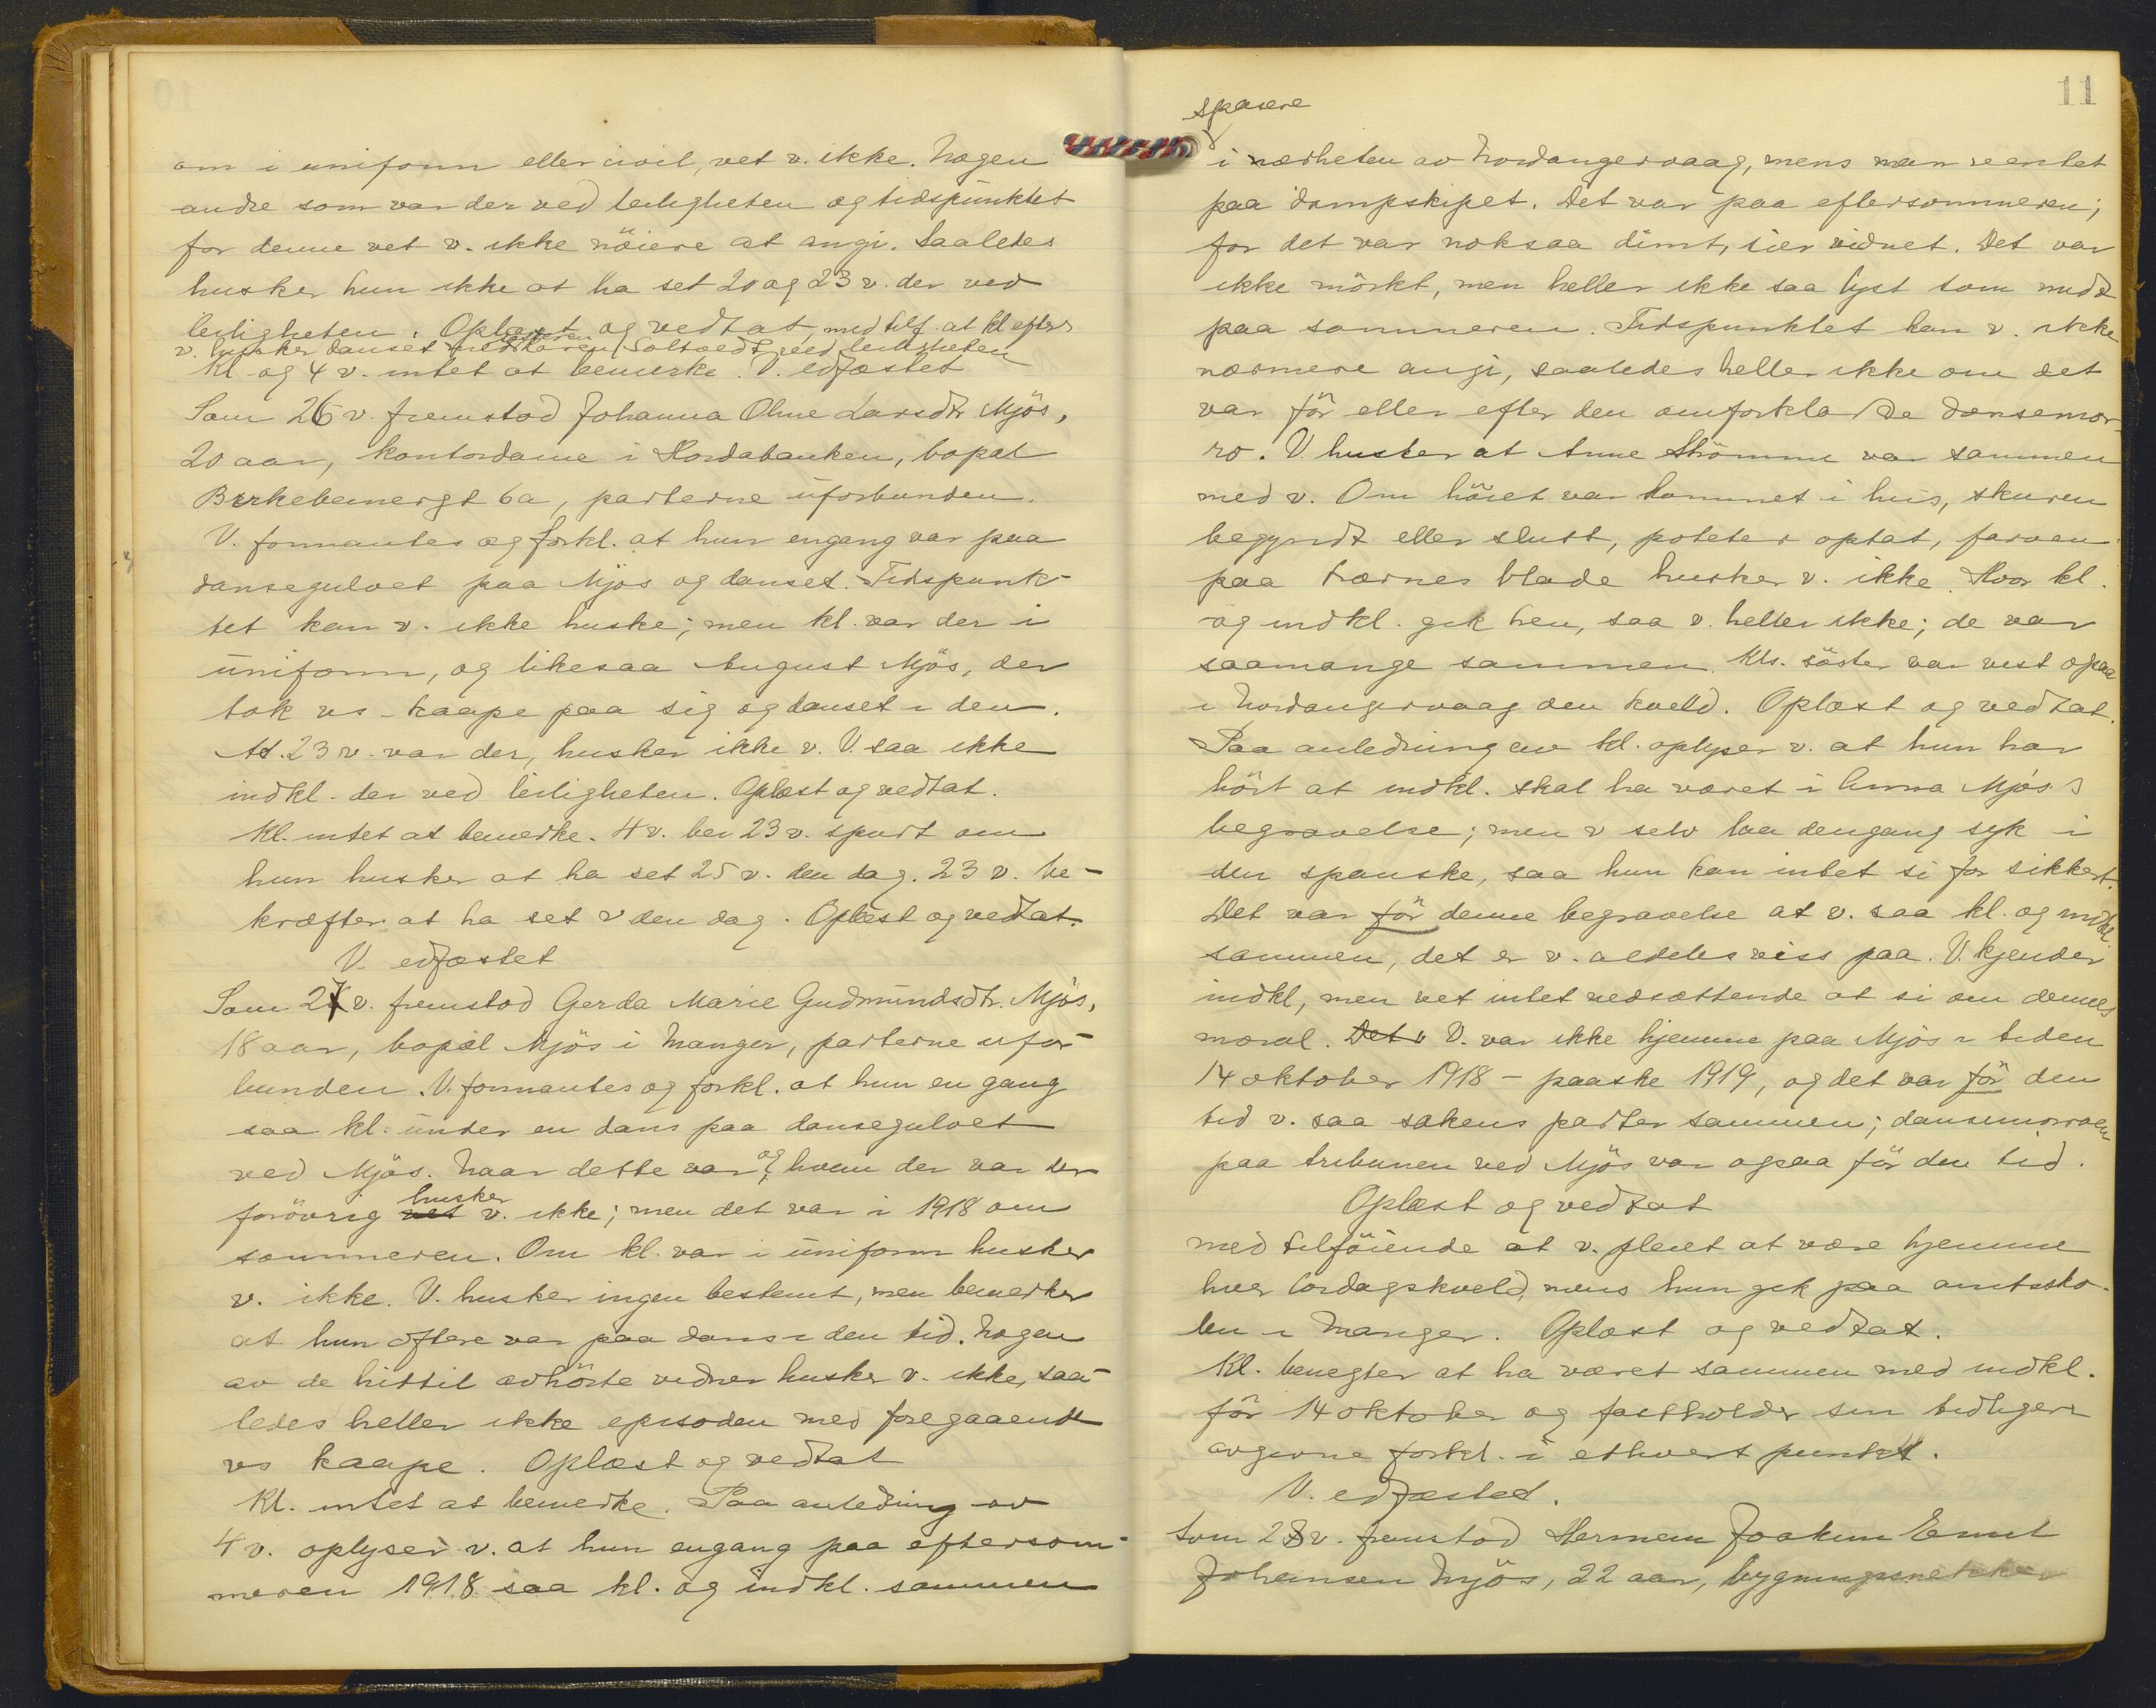 om i uniform eller civil, vet v. ikke. Nogen
andre som var der ved leiligheten og tidspunktet
for denne vet v. ikke nöiere at angi. Saaledes
husker hun ikke at ha set 20 og 23 v. der ved
leiligheten. Oplæst og vedtat, med tilf. at kl efter
v. husker danset med Soltvedt ved leiligheten
Kl og 4 v. intet at bemerke. V. edfæstet
Som 26 v. fremstod Johanna Oline Larsdtr Mjös,
20 aar, kontordame i Hordabanken, bopæl
Birkebeinergt 6a, parterne uforbunden.
V. formantes og forkl. at hun engang var paa
dansegulvet paa Mjös og danset. Tidspunk-
tet kan v. ikke huske; men kl. var der i
uniform, og likesaa August Mjös, der
tok vs kaape paa sig og danset i den.
At 23 v. var der, husker ikke v. V. saa ikke
indkl. der ved leiligheten. Oplæst og vedtat.
Kl. intet at bemerke. 4 v. ber 23 v. spurt om
hun husker at ha set 25 v. den dag. 23 v. be-
kræfter at ha set v den dag. Oplæst og vedtat.
V. edfæstet
Som 27 v. fremstod Gerda Marie Gudmundsdtr. Mjös,
18 aar, bopæl Mjös i Manger, parterne ufor-
bunden. V. formantes og forkl. at hun en gang
saa kl. under en dans paa dansegulvet
ved Mjös. Naar dette var og hvem der var der
forövrig vet husker v. ikke; men det var i 1918 om
sommeren. Om kl. var i uniform husker
v. ikke. V. husker ingen bestemt, men bemerker
at hun oftere var paa dans i den tid. Nogen
av de hittil avhörte vidner husker v. ikke, saa-
ledes heller ikke episoden med foregaaende
vs kaape. Oplæst og vedtat
Kl. intet at bemerke. Paa anledning av
4 v. oplyser v. at hun engang paa eftersom-
meren 1918 saa kl. og indkl. sammen
11
spasere
i nærheten av Nordangervaag, mens man ventet
paa dampskipet. Det var paa eftersommeren;
for det var noksaa dimt, sier vidnet. Det var
ikke mörkt, men heller ikke saa lyst som midt
paa sommeren. Tidspunktet kan v. ikke
nærmere angi, saaledes heller ikke om det
var för eller efter den omforklarede dansemor-
ro. V. husker at Anne Strömme var sammen
med v. Om höiet var kommet i hus, skuren
begyndt eller slutt, poteter optat, farven
paa trærnes blade husker v. ikke. Hvor kl.
og indkl. gik hen, saa v. heller ikke; de var
saamange sammen. Kls. söster var vist ogsaa
i Nordangervaag den kveld. Oplæst og vedtat.
Paa anledning av kl. oplyser v. at hun har
hört at indkl. skal ha været i Anna Mjös's
begravelse; men v selv laa dengang syk i
den spanske, saa hun kan intet si for sikkert.
Det var för denne begravelse at v. saa kl. og indkl.
sammen, det er v. aldeles viss paa. V. kjender
indkl, men vet intet nedsættende at si om dennes
moral. Det v V. var ikke hjemme paa Mjös i tiden
14 oktober 1918 – paaske 1919, og det var för den
tid v. saa sakens parter sammen; dansemorroen
paa tribunen ved Mjös var ogsaa för den tid.
Oplæst og vedtat
med tilföiende at v. pleiet at være hjemme
hver lördagskveld, mens hun gik paa amtssko-
len i Manger. Oplæst og vedtat.
Kl. benegter at ha været sammen med indkl.
för 14 oktober og fastholder sin tidligere
avgivne forkl. i ethvert punkt.
V. edfæstet.
Som 28 v. fremstod Herman Joakim Emil
Johansen Mjös, 22 aar, bygningssnekker